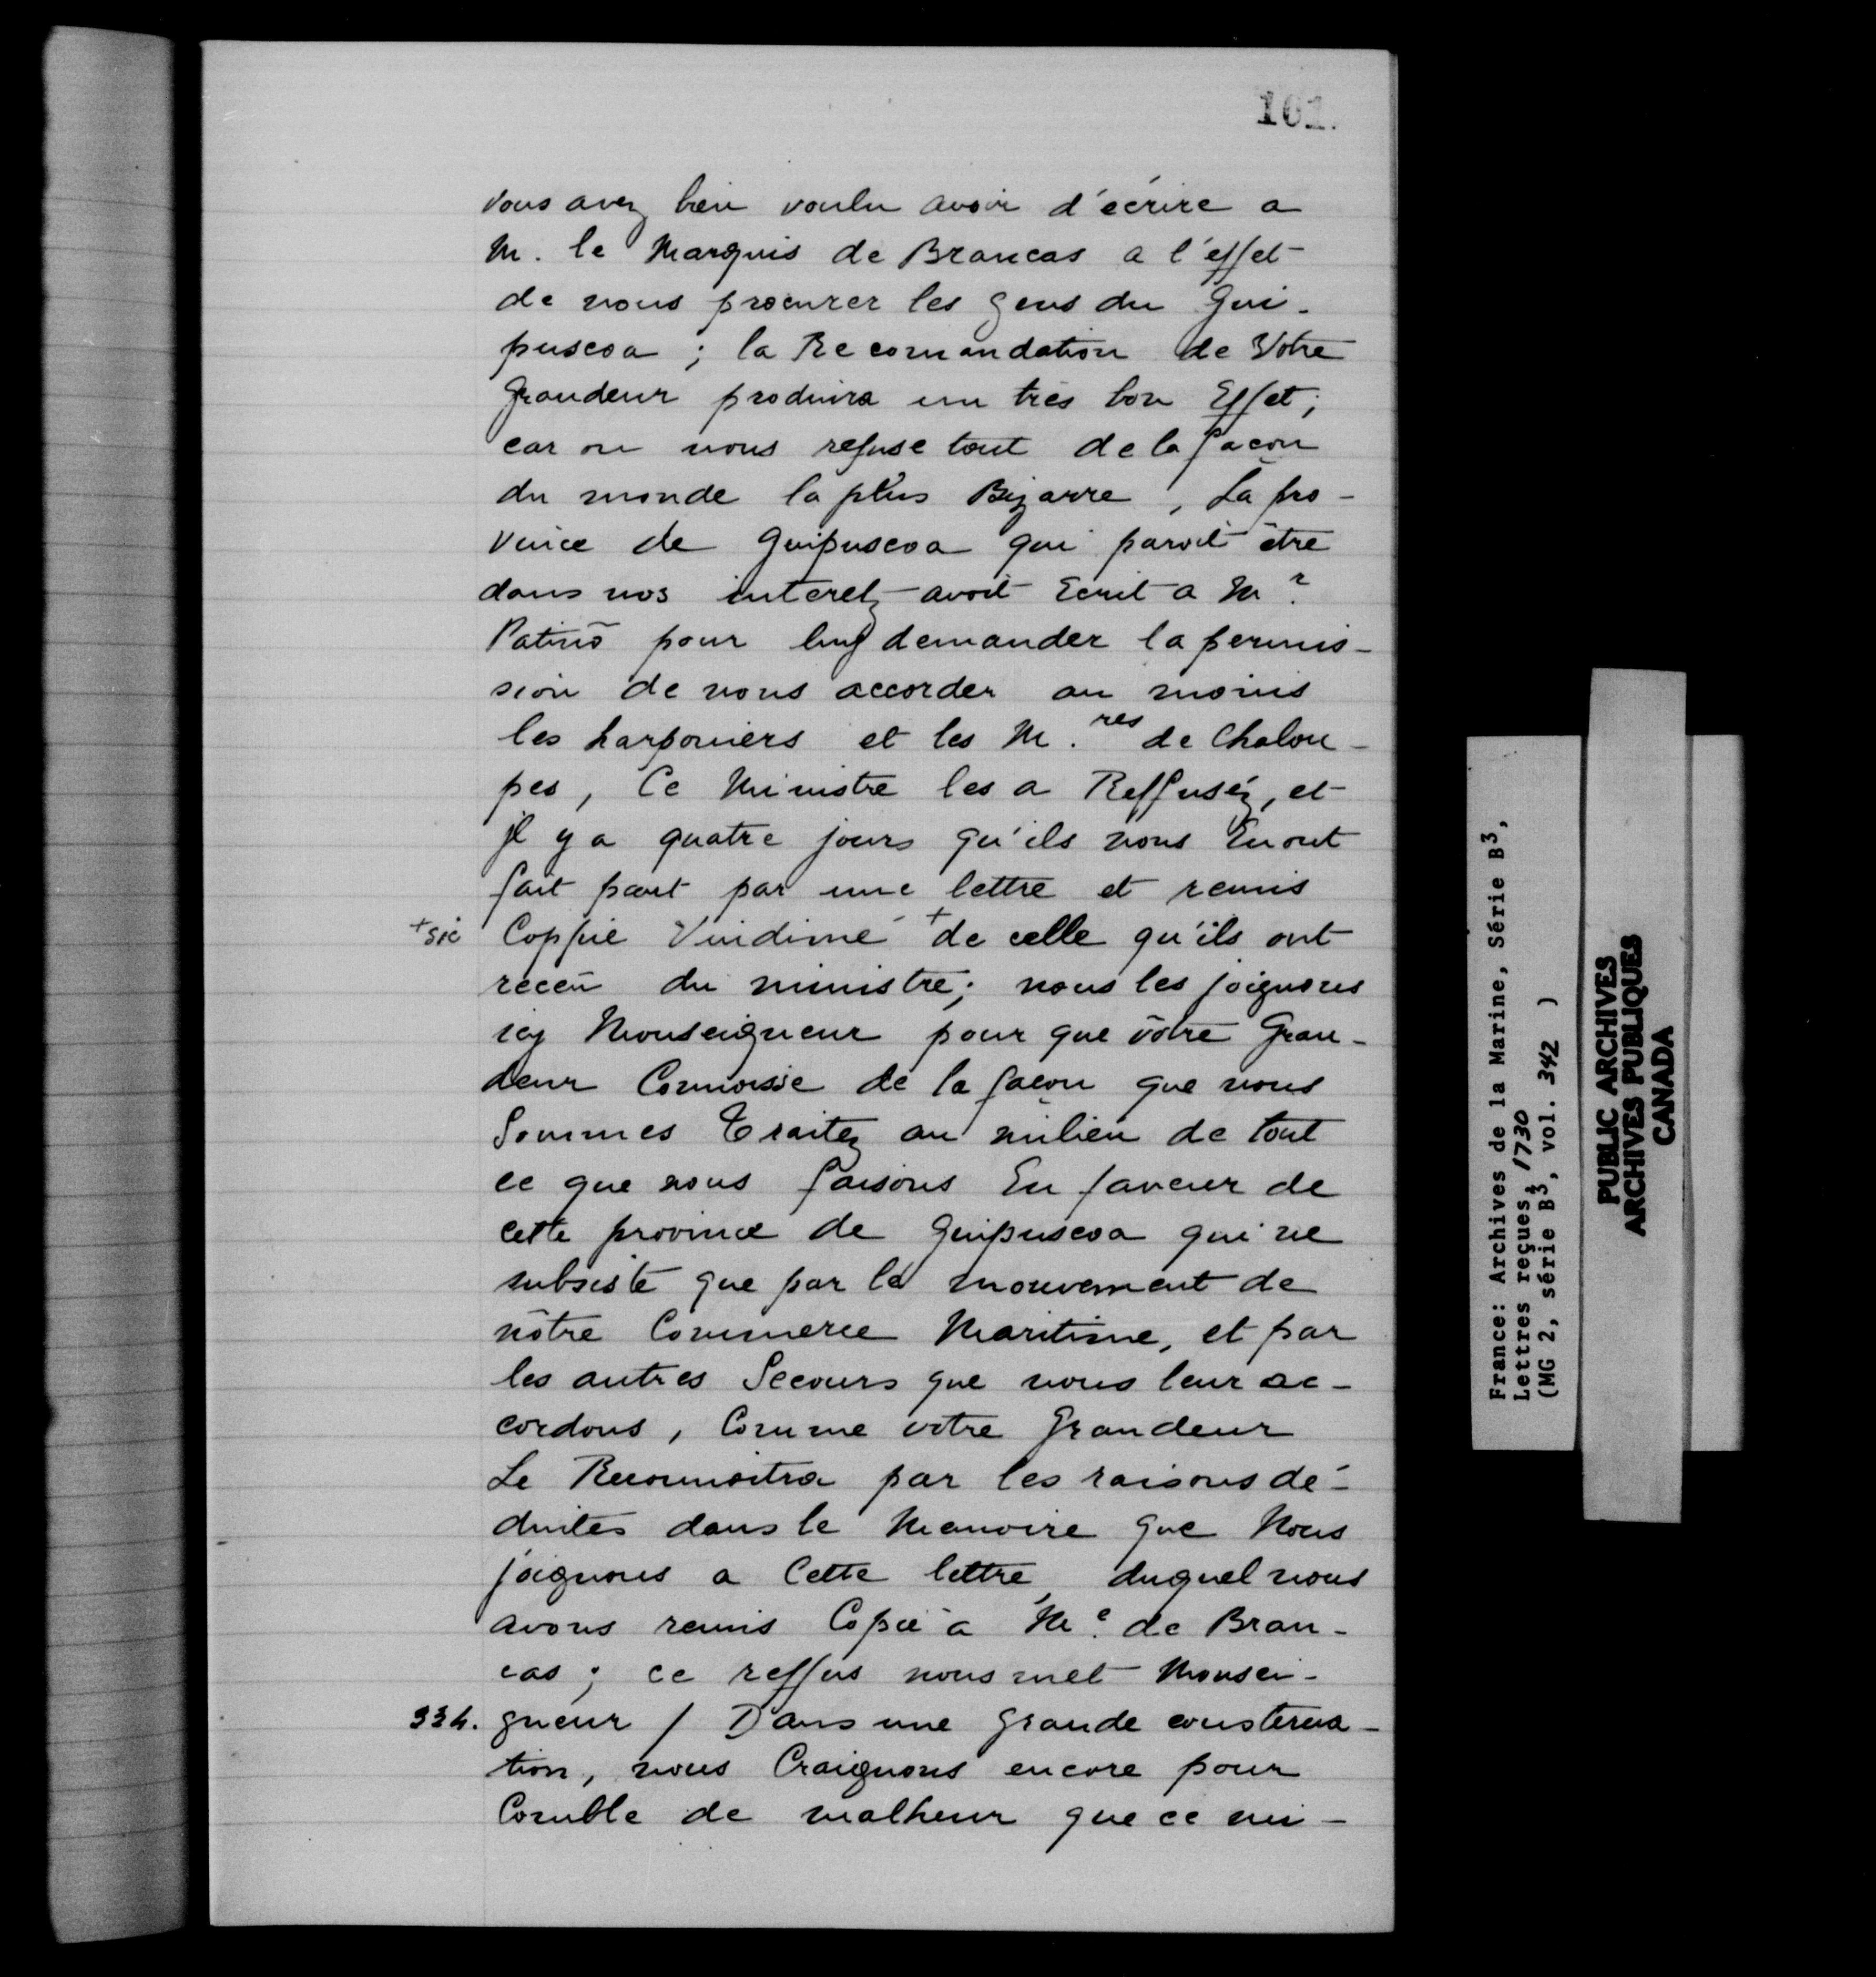 101.
vous avez bien voulu avoir d'écrire a
M. le Marquis de Brancas a l'effet
de nous procurer les gens du Gui-
puscoa ; la Recomandation de Votre
Grandeur produira un très bon Effet ;
car on nous refuse tout de la façon
du monde la plus Bizarre, La pro-
vince de Guipuscoa qui paroît être
dans nos interetz avoit Ecrit a Mr.
Patino pour luy demander la permis-
sion de nous accorder au moins
les harponiers et les M.res de Chalou-
pes, Ce Ministre les a Reffuséz, et
jl y a quatre jours qu'ils nous En ont
fait part par une lettre et remis
+sic Coppie Vindimé + de celle qu'ils ont
receü du ministre ; nous les joignons
icy Monseigneur pour que vôtre Gran-
deur Connoisse de la façon que nous
Sommes Traitez au milieu de tout
ce que nous faisons En faveur de
cette province de Guipuscoa qui ne
subsiste que par le mouvement de
nôtre Commerce Maritime, et par
les autres Secours que nous leur ac-
cordons, Comme votre Grandeur
Le Reconnoitra par les raisons dé-
duites dans le Memoire que Nous
joignons a Cette lettre, duquel nous
avons remis Copie a Me. de Bran-
cas ; ce reffus nous met Monsei-
334. gneur / Dans une grande consterna-
tion, nous Craignons encore pour
Comble de malheur que ce mi-
France: Archives de la Marine, Série B3,
Lettres reçues, 1730
(MG 2, série B3, vol. 342 )
PUBLIC ARCHIVES
ARCHIVES PUBLIQUES
CANADA